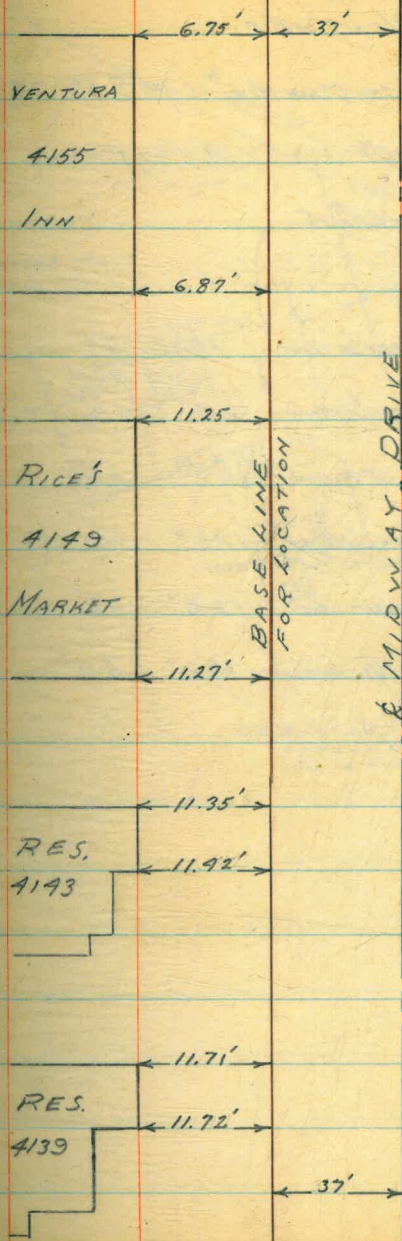 6.75' 37'
VENTURA
4155
INN
6.87'
11.25
RICE'S
4149
MARKET
11.27'
BASE LINE
FOR LOCATION
℄ MIDWAY DRIVE
11.35'
RES.
4143
11.42'
11.71'
RES.
4139
11.72'
37'